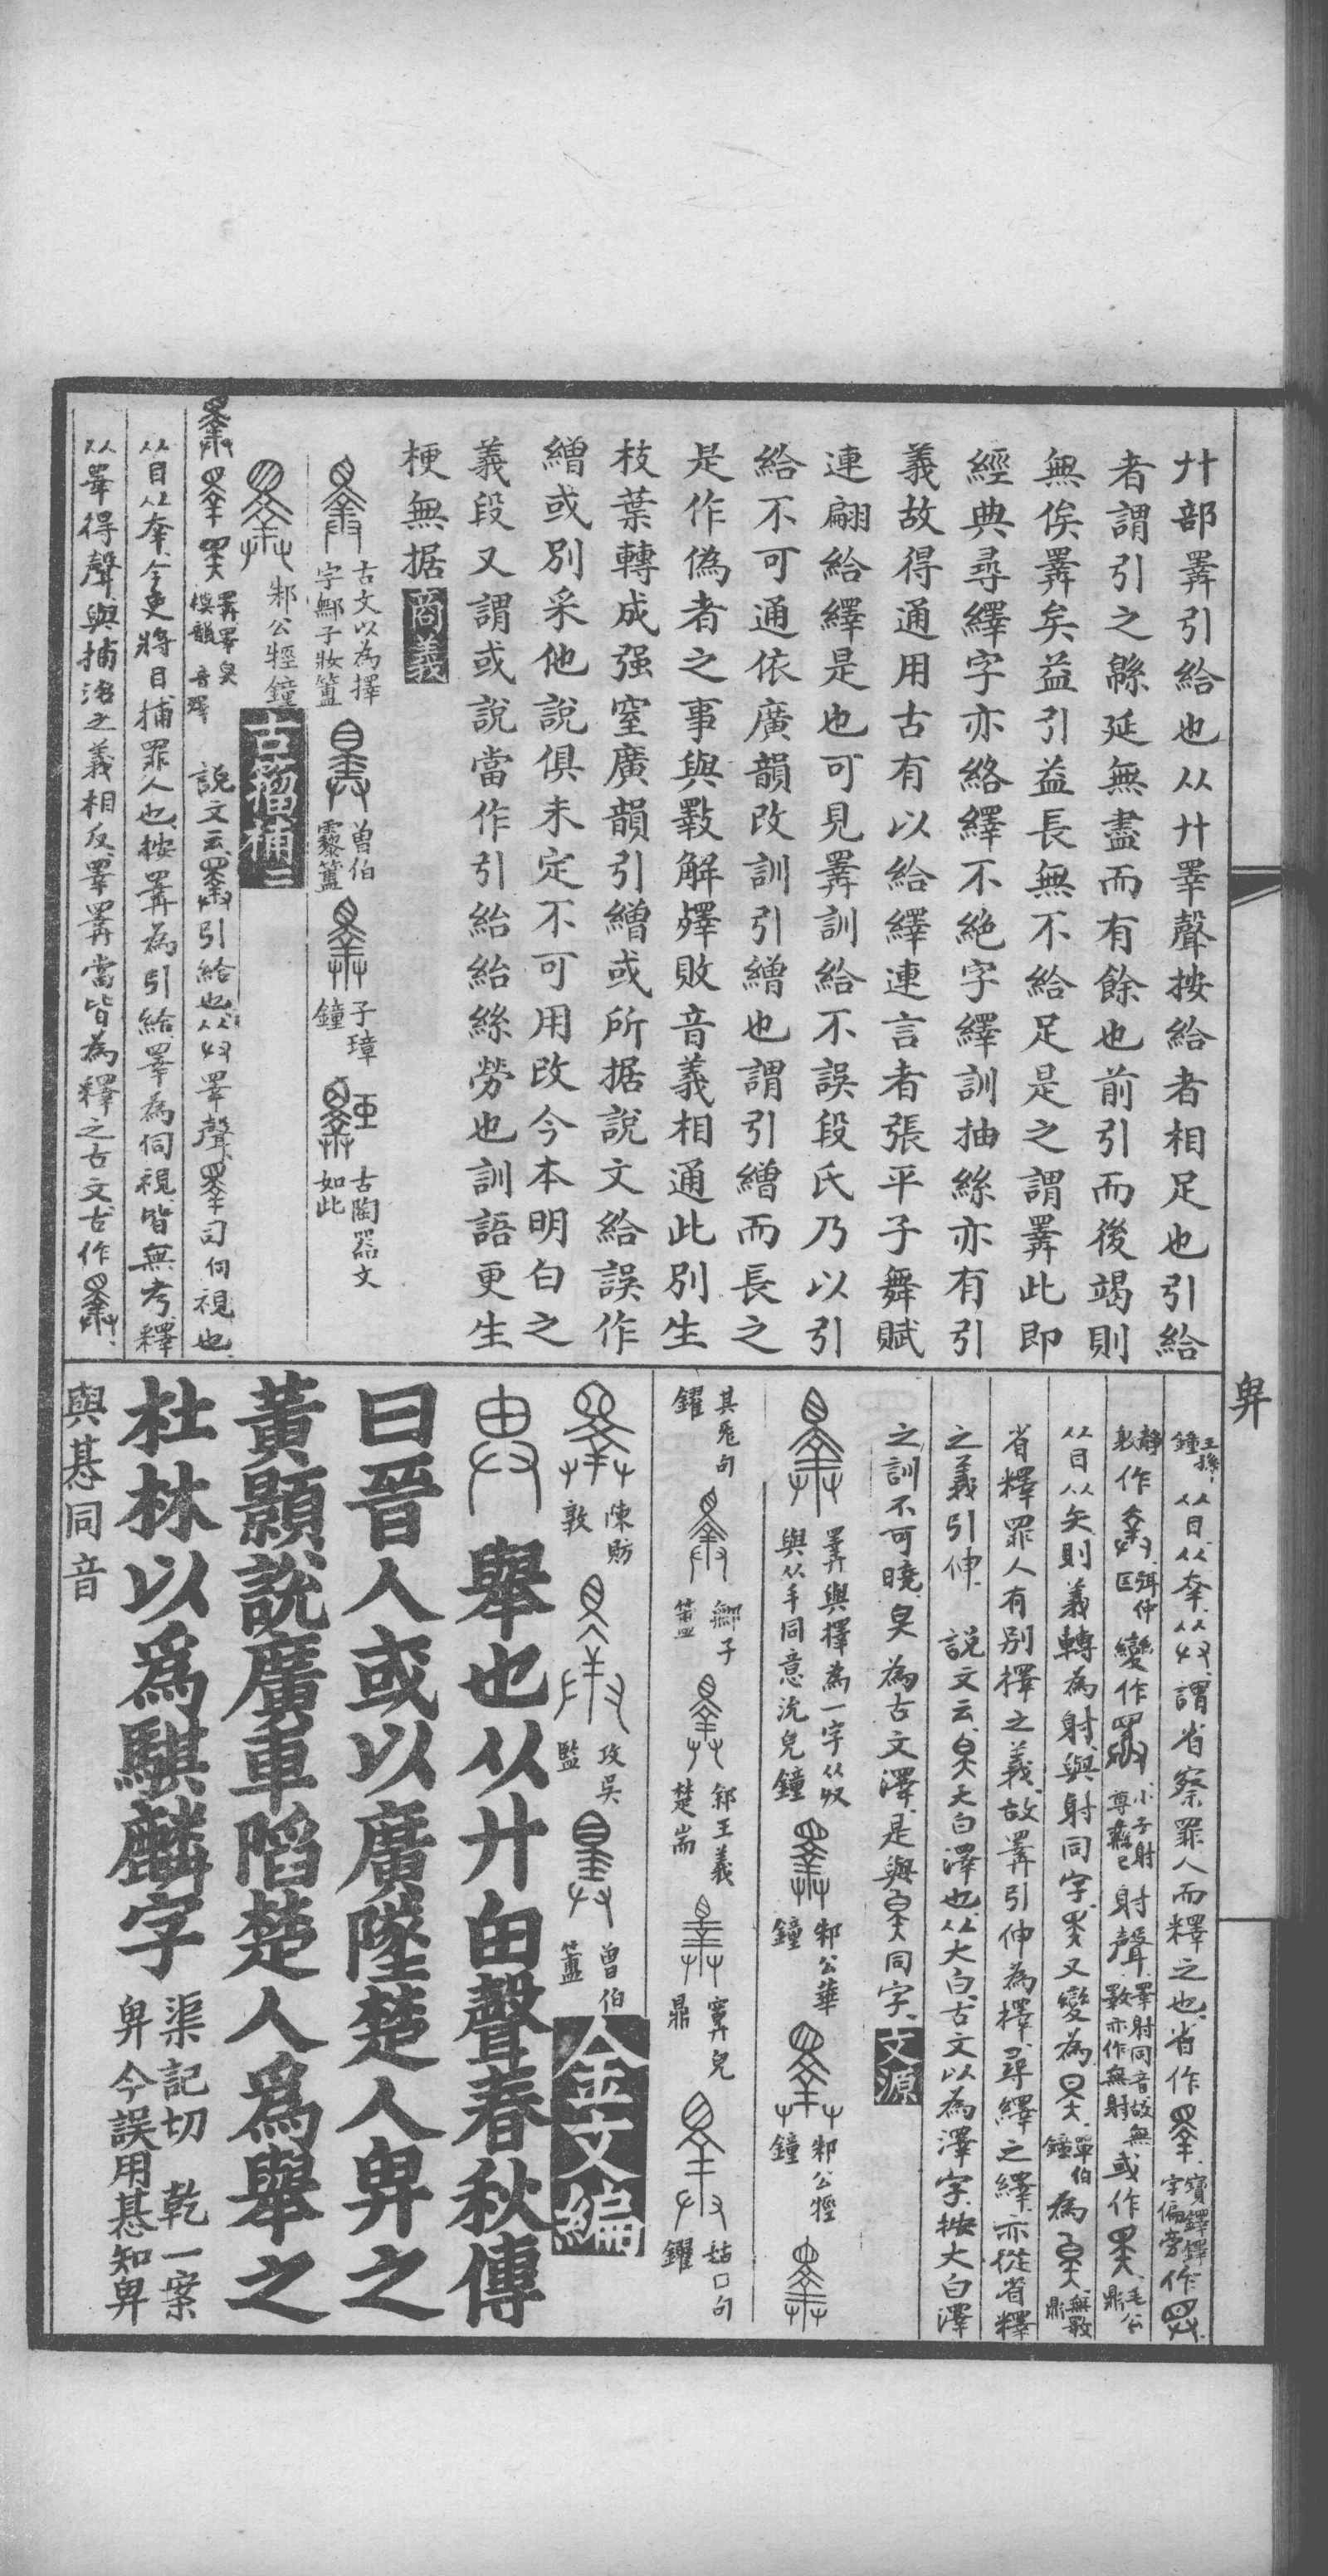 廾部𢍰引給也从廾睪聲按給者相足也引給
者謂引之緜延無盡而有餘也前引而後竭則
無俟𢍰矣益引益長無不給足是之謂𢍰此即
經典尋繹字亦絡繹不絶字繹訓抽絲亦有引
義故得通用古有以給繹連言者張平子舞賦
連翩給繹是也可見𢍰訓給不誤段氏乃以引
給不可通依廣韻改訓引繒也謂引繒而長之
是作偽者之事與斁解殬敗音義相通此別生
枝葉轉成强窒廣韻引繒或所据說文給誤作
繒或別采他說俱未定不可用改今本明白之
義段又謂或說當作引紿紿絲勞也訓語更生
梗無据商義
古文以為擇
字鄦子妝簠
曾伯
𩆜簠
子璋
鐘
古陶器文
如此
邾公牼鐘
古籀補二
說文云引給也从廾睪聲司伺視也
从目从㚔今吏將目捕罪人也按𢍰為引給睪為伺視皆無考釋
从睪得聲與捕治之義相反睪𢍰當皆為釋之古文古作
王孫
鐘
从目从㚔从廾謂省察罪人而釋之也省作
字偏旁作
靜
敦
作
弭仲
匡
變作
小子射
尊
射聲
睪射同音故無
斁亦作無射
或作
毛公
鼎
从目从矢則義轉為射與射同字又變為
單伯
鐘
為
無斁
鼎
省釋罪人有別擇之義故𢍰引伸為擇尋繹之繹亦從省釋
之義引伸 說文云大白澤也从大白古文以為澤字按大白澤
之訓不可曉臭為古文澤是與同字文源
𢍰與擇為一字从廾
與从手同意沇兒鐘
邾公華
鐘
邾公牼
鐘
其𠫑句
鑃
鄦子
簠
郐王義
楚耑
𡩜兒
鼎
姑口句
鑃
陳肪
敦
攻吳
監
曾伯
簠
金文編
舉也从廾甶聲春秋傳
曰晉人或以廣墜楚人畁之
黃顥說廣車陷楚人爲舉之
杜林以爲騏麟字
渠記切 乾一案
畁今誤用惎知畁
與惎同音
畁